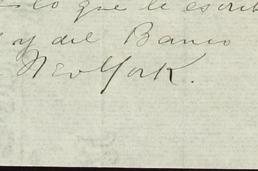 lo que le escrib
y del Banco
New York.